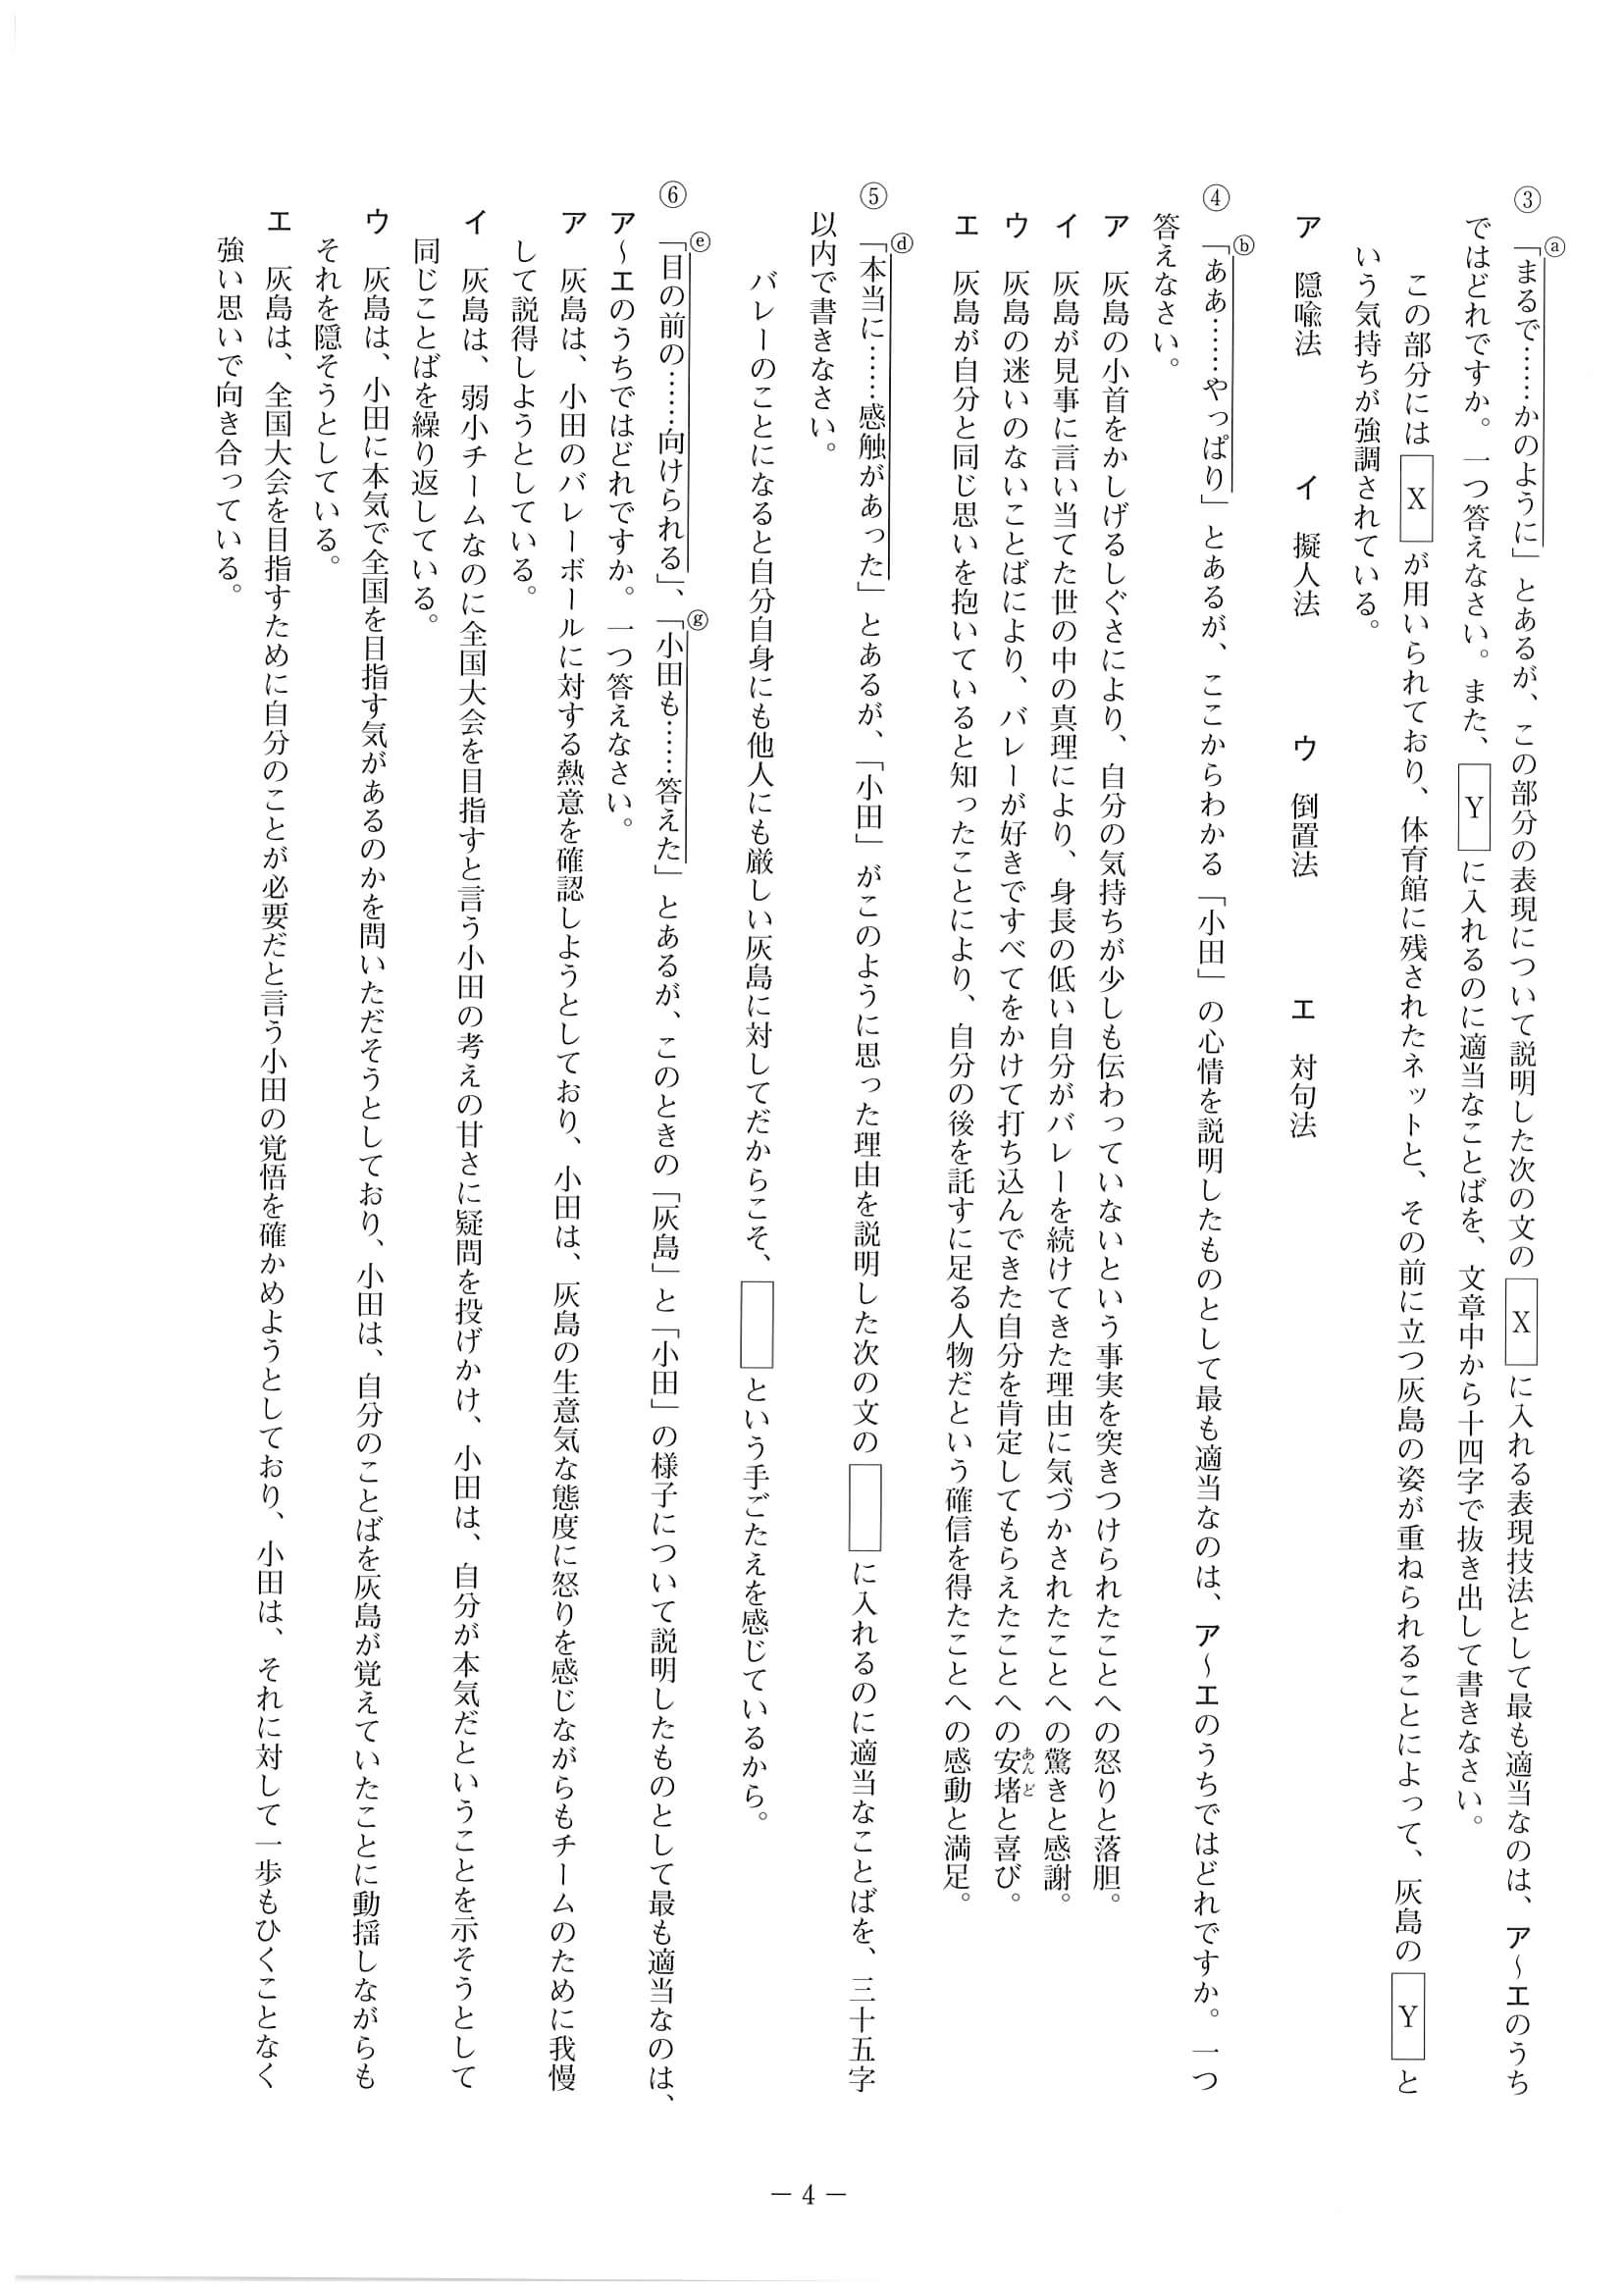 ③　ⓐ「まるで……かのように」とあるが、この部分の表現について説明した次の文の X に入れる表現技法として最も適当なのは、ア～エのうち
ではどれですか。一つ答えなさい。また、 Y に入れるのに適当なことばを、文章中から十四字で抜き出して書きなさい。
この部分には X が用いられており、体育館に残されたネットと、その前に立つ灰島の姿が重ねられることによって、灰島の Y と
いう気持ちが強調されている。
ア　隠喩法　イ　擬人法　ウ　倒置法　エ　対句法
④　ⓑ「ああ……やっぱり」とあるが、ここからわかる「小田」の心情を説明したものとして最も適当なのは、ア～エのうちではどれですか。一つ
答えなさい。
ア　灰島の小首をかしげるしぐさにより、自分の気持ちが少しも伝わっていないという事実を突きつけられたことへの怒りと落胆。
イ　灰島が見事に言い当てた世の中の真理により、身長の低い自分がバレーを続けてきた理由に気づかされたことへの驚きと感謝。
ウ　灰島の迷いのないことばにより、バレーが好きですべてをかけて打ち込んできた自分を肯定してもらえたことへの安堵あんどと喜び。
エ　灰島が自分と同じ思いを抱いていると知ったことにより、自分の後を託すに足る人物だという確信を得たことへの感動と満足。
⑤　ⓓ「本当に……感触があった」とあるが、「小田」がこのように思った理由を説明した次の文の　　　に入れるのに適当なことばを、三十五字
以内で書きなさい。
バレーのことになると自分自身にも他人にも厳しい灰島に対してだからこそ、　　　という手ごたえを感じているから。
⑥　ⓔ「目の前の……向けられる」、ⓖ「小田も……答えた」とあるが、このときの「灰島」と「小田」の様子について説明したものとして最も適当なのは、
ア～エのうちではどれですか。一つ答えなさい。
ア　灰島は、小田のバレーボールに対する熱意を確認しようとしており、小田は、灰島の生意気な態度に怒りを感じながらもチームのために我慢
して説得しようとしている。
イ　灰島は、弱小チームなのに全国大会を目指すと言う小田の考えの甘さに疑問を投げかけ、小田は、自分が本気だということを示そうとして
同じことばを繰り返している。
ウ　灰島は、小田に本気で全国を目指す気があるのかを問いただそうとしており、小田は、自分のことばを灰島が覚えていたことに動揺しながらも
それを隠そうとしている。
エ　灰島は、全国大会を目指すために自分のことが必要だと言う小田の覚悟を確かめようとしており、小田は、それに対して一歩もひくことなく
強い思いで向き合っている。
― 4 ―